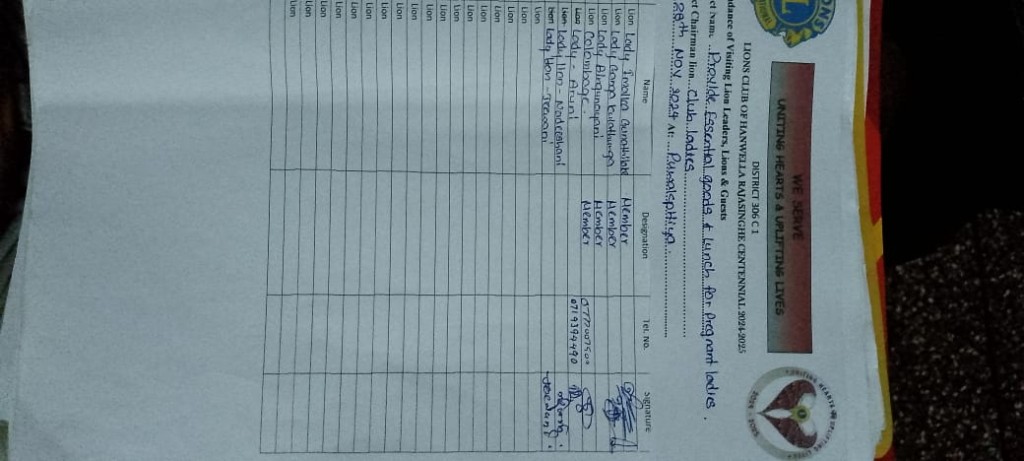 WE SERVE
UNITING HEARTS & UPLIFTING LIVES
DISTRICT 306 C 1
LIONS CLUB OF HANWELLA RAJASINGHE CENTENNIAL 2024-2025
dance of Visiting Lion Leaders, Lions & Guests
ct Name ... Provide Essential goods & lunch for pregnant ladies.
ct Chairman lion... Club ladies
28th Nov 2024 At: ... Puwakpitiya
Name Designation Tel. No. Signature
Lion Lady Gunathilake Member
Lion Lady Ganga Kulathunga Member
Lion Lady Member
Lion Colombage. Member
Lion Lady - Aruni 0719394490
Lion Lady Lion Nadeeshani
Lion Lady Lion - Jeewani
Lion
Lion
Lion
Lion
Lion
Lion
Lion
Lion
Lion
Lion
Lion
Lion
Lion
Lion
Lion
Lion